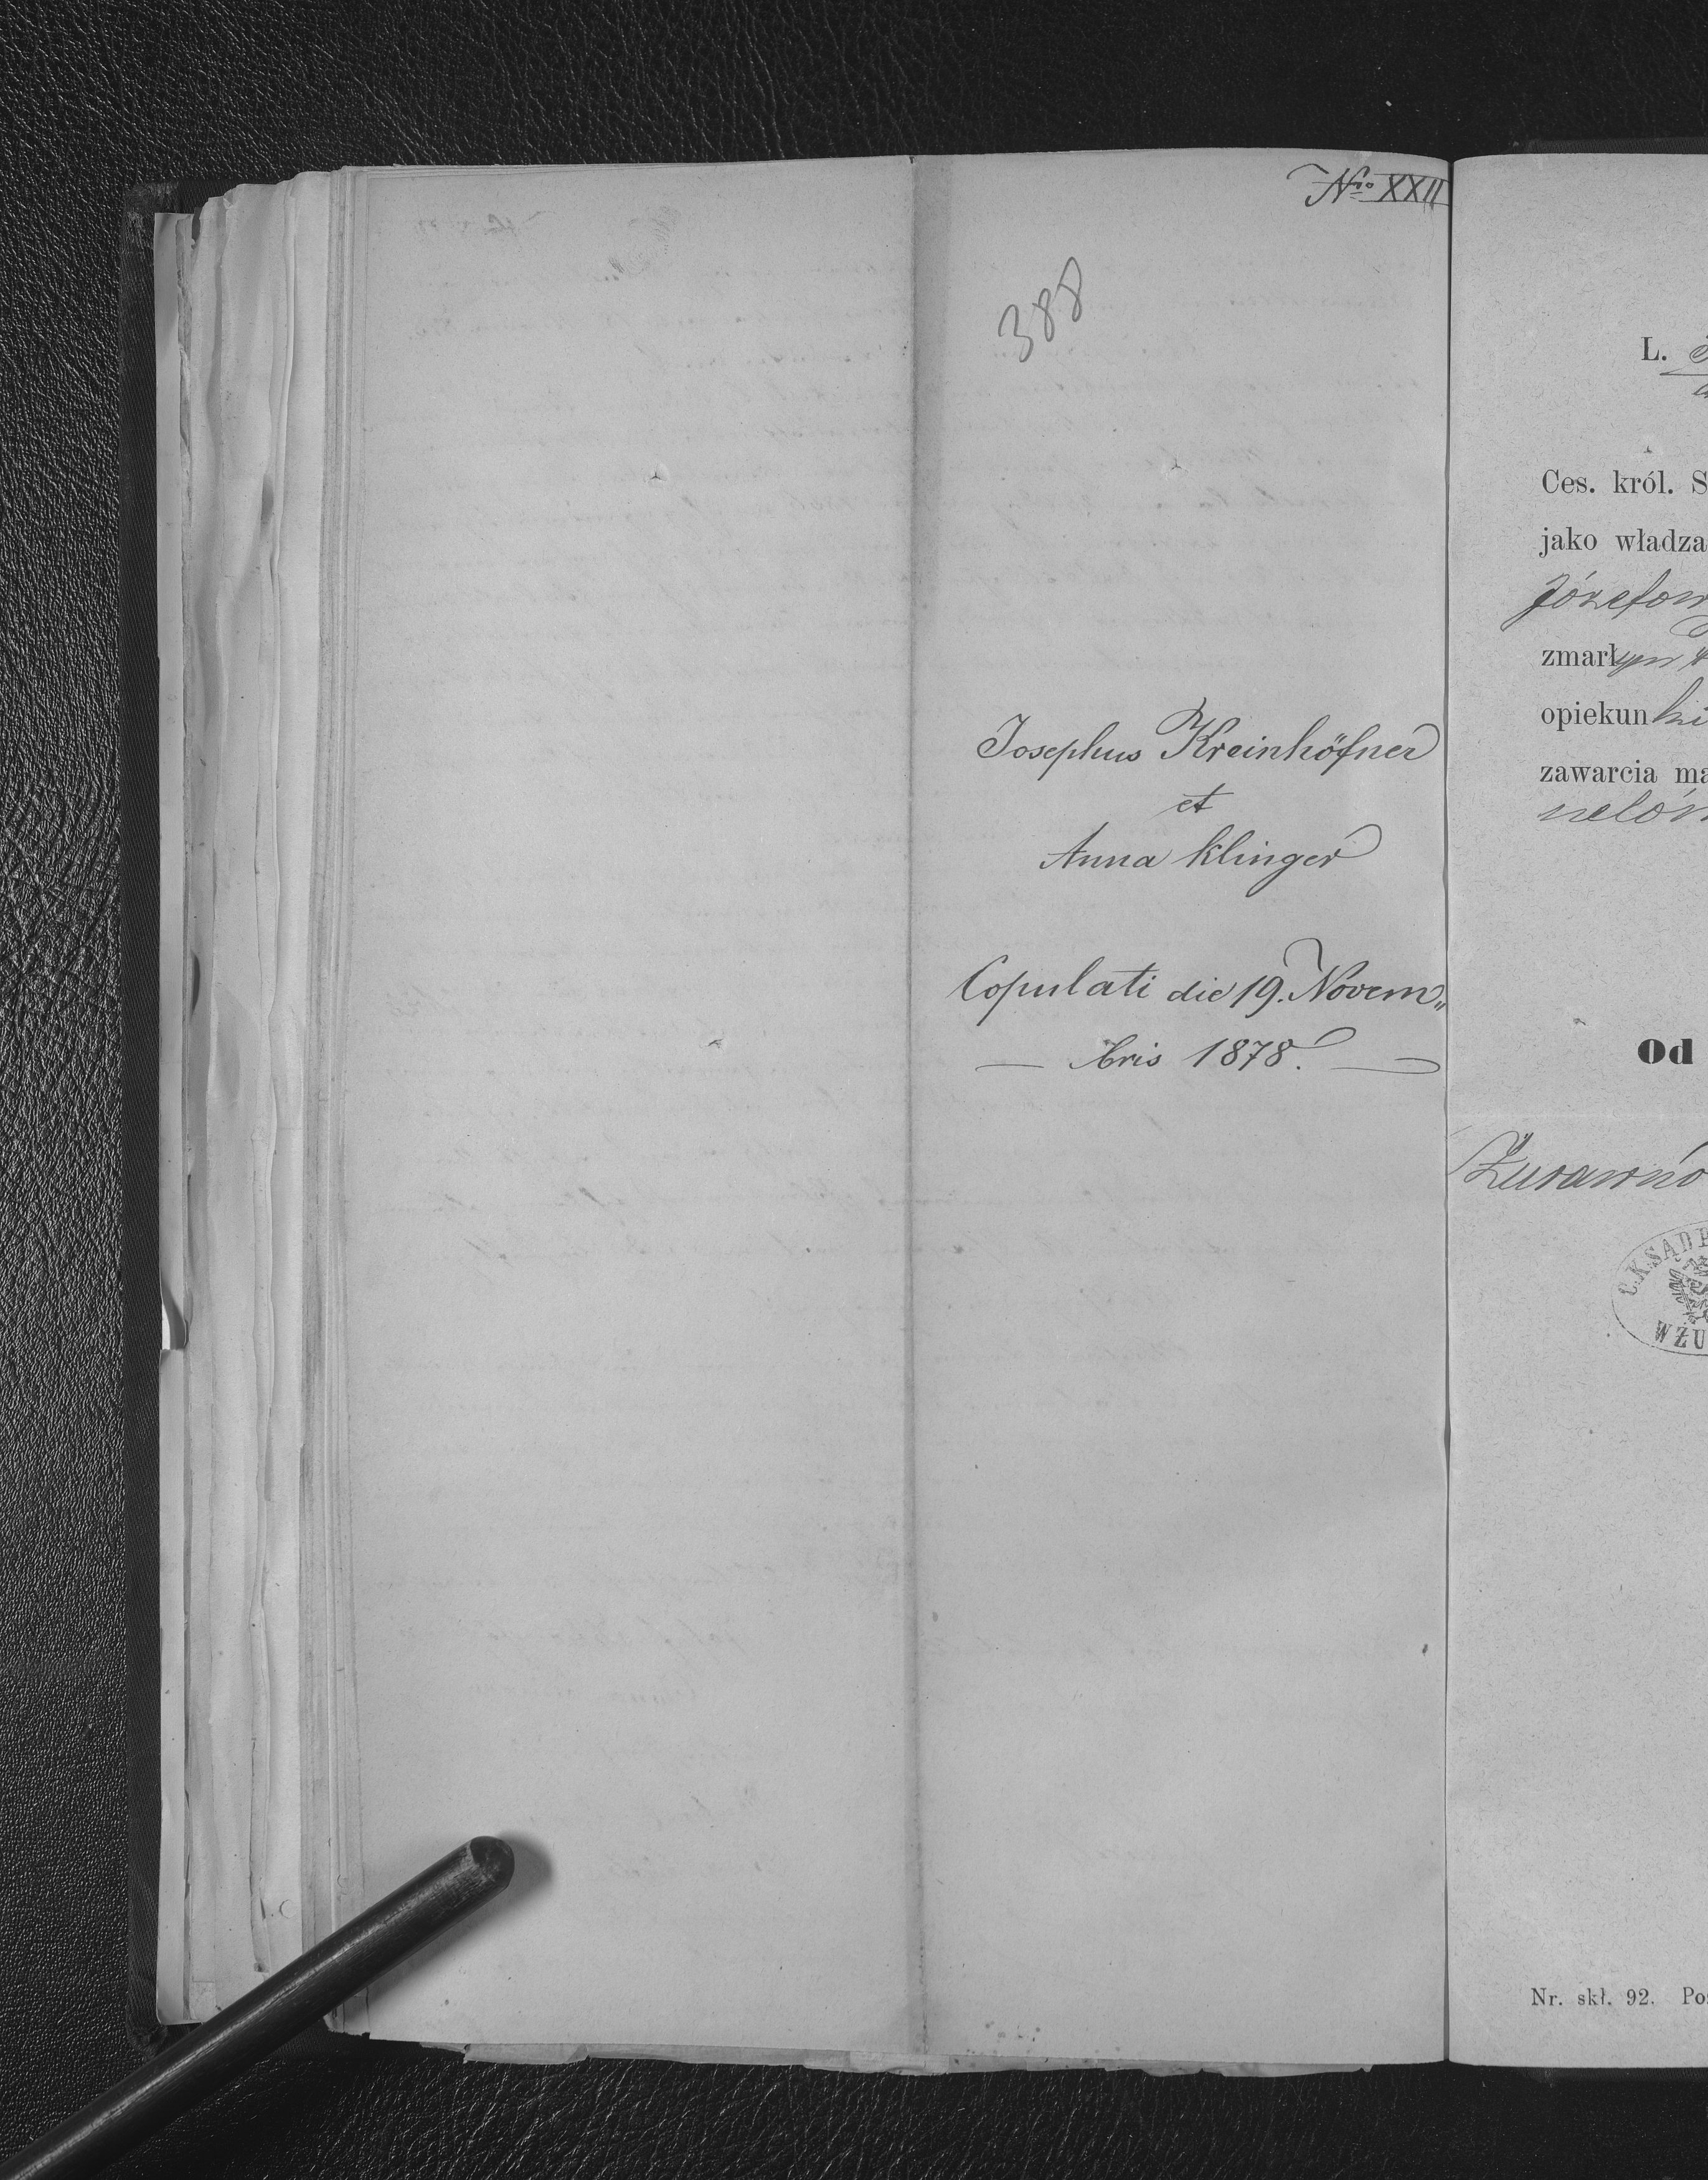 Nro XXII
388
Josephus Kreinhöfner
et
Anna Klinger
Copulati die 19. Novem„
— bris 1878. —
L.
Ces. król. S
jako władza
Józefow
zmarłym
opiekun
zawarcia ma
nelów
Od
Żurawno
C.K.SĄD P
W ŻU
Nr. skł. 92. Po